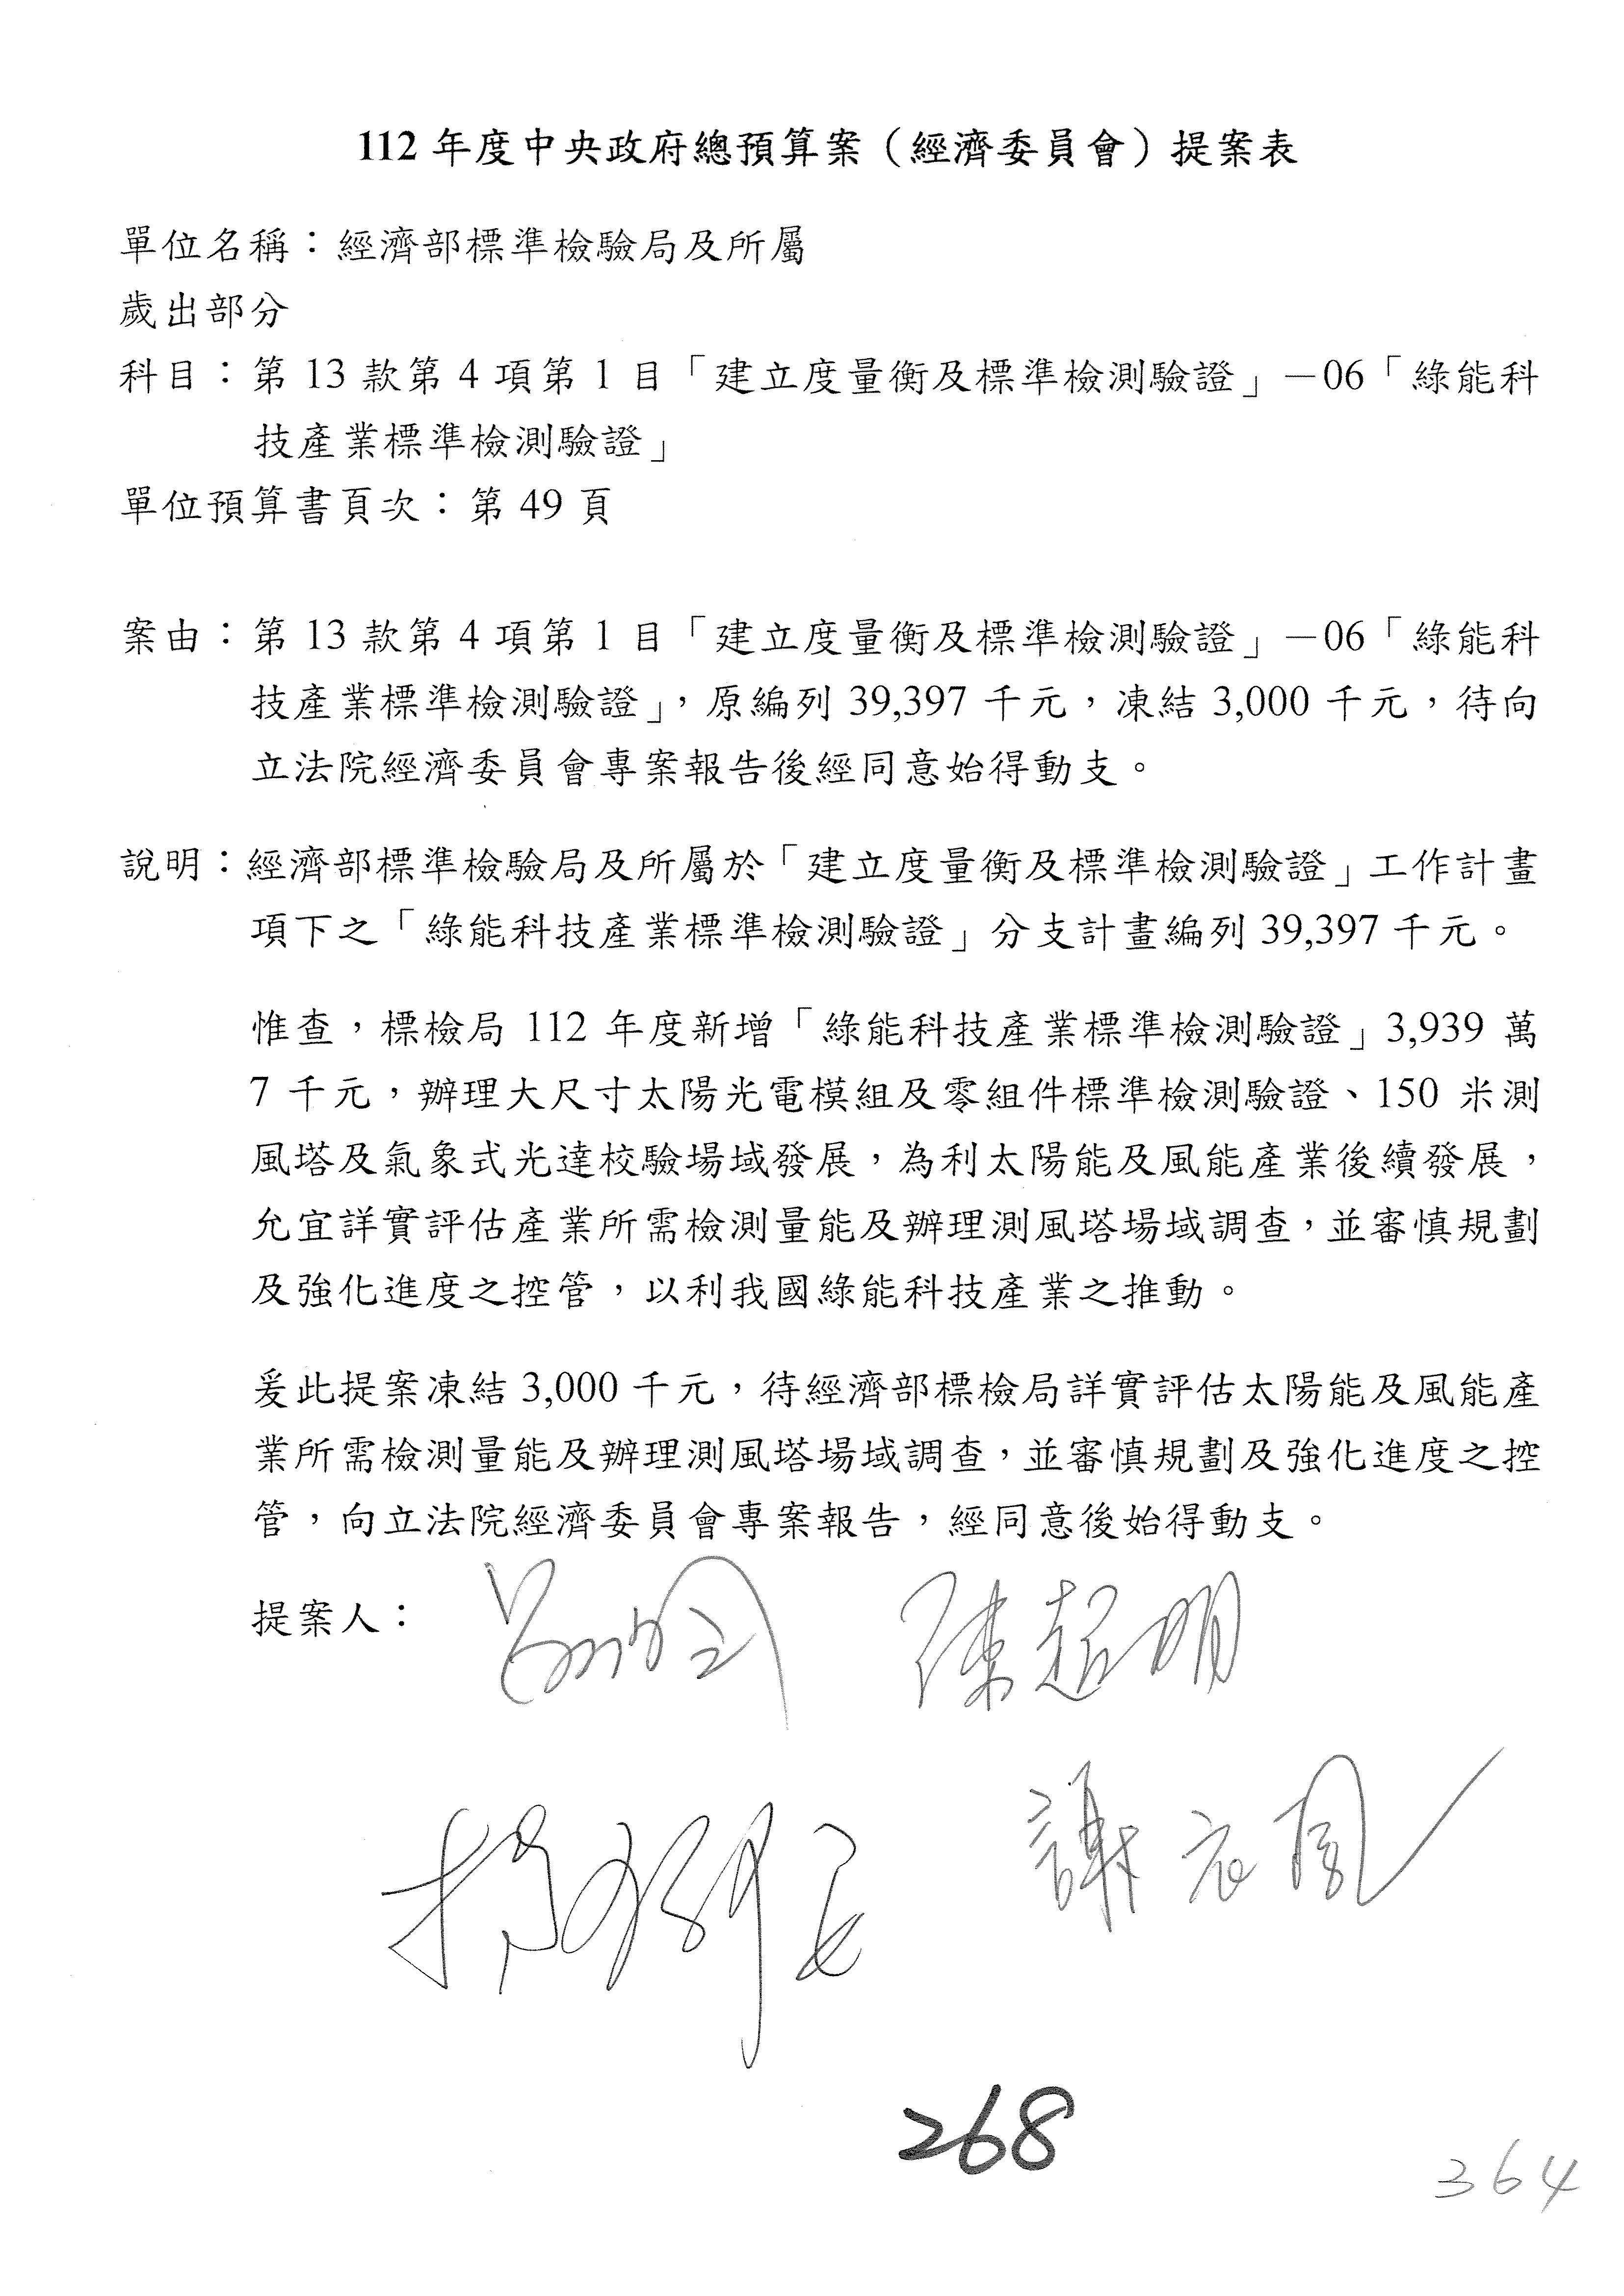 112 年度中央政府總預算案（經濟委員會）提案表
單位名稱：經濟部標準檢驗局及所屬
歲出部分
科目：第 13 款第 4 項第 1 目「建立度量衡及標準檢測驗證」－06「綠能科
技產業標準檢測驗證」
單位預算書頁次：第 49 頁
案由：第 13 款第 4 項第 1 目「建立度量衡及標準檢測驗證」－06「綠能科
技產業標準檢測驗證」，原編列 39,397 千元，凍結 3,000 千元，待向
立法院經濟委員會專案報告後經同意始得動支。
說明：經濟部標準檢驗局及所屬於「建立度量衡及標準檢測驗證」工作計畫
項下之「綠能科技產業標準檢測驗證」分支計畫編列 39,397 千元。
惟查，標檢局 112 年度新增「綠能科技產業標準檢測驗證」3,939 萬
7 千元，辦理大尺寸太陽光電模組及零組件標準檢測驗證、150 米測
風塔及氣象式光達校驗場域發展，為利太陽能及風能產業後續發展，
允宜詳實評估產業所需檢測量能及辦理測風塔場域調查，並審慎規劃
及強化進度之控管，以利我國綠能科技產業之推動。
爰此提案凍結 3,000 千元，待經濟部標檢局詳實評估太陽能及風能產
業所需檢測量能及辦理測風塔場域調查，並審慎規劃及強化進度之控
管，向立法院經濟委員會專案報告，經同意後始得動支。
提案人：
陳超明
謝衣鳳
268
364